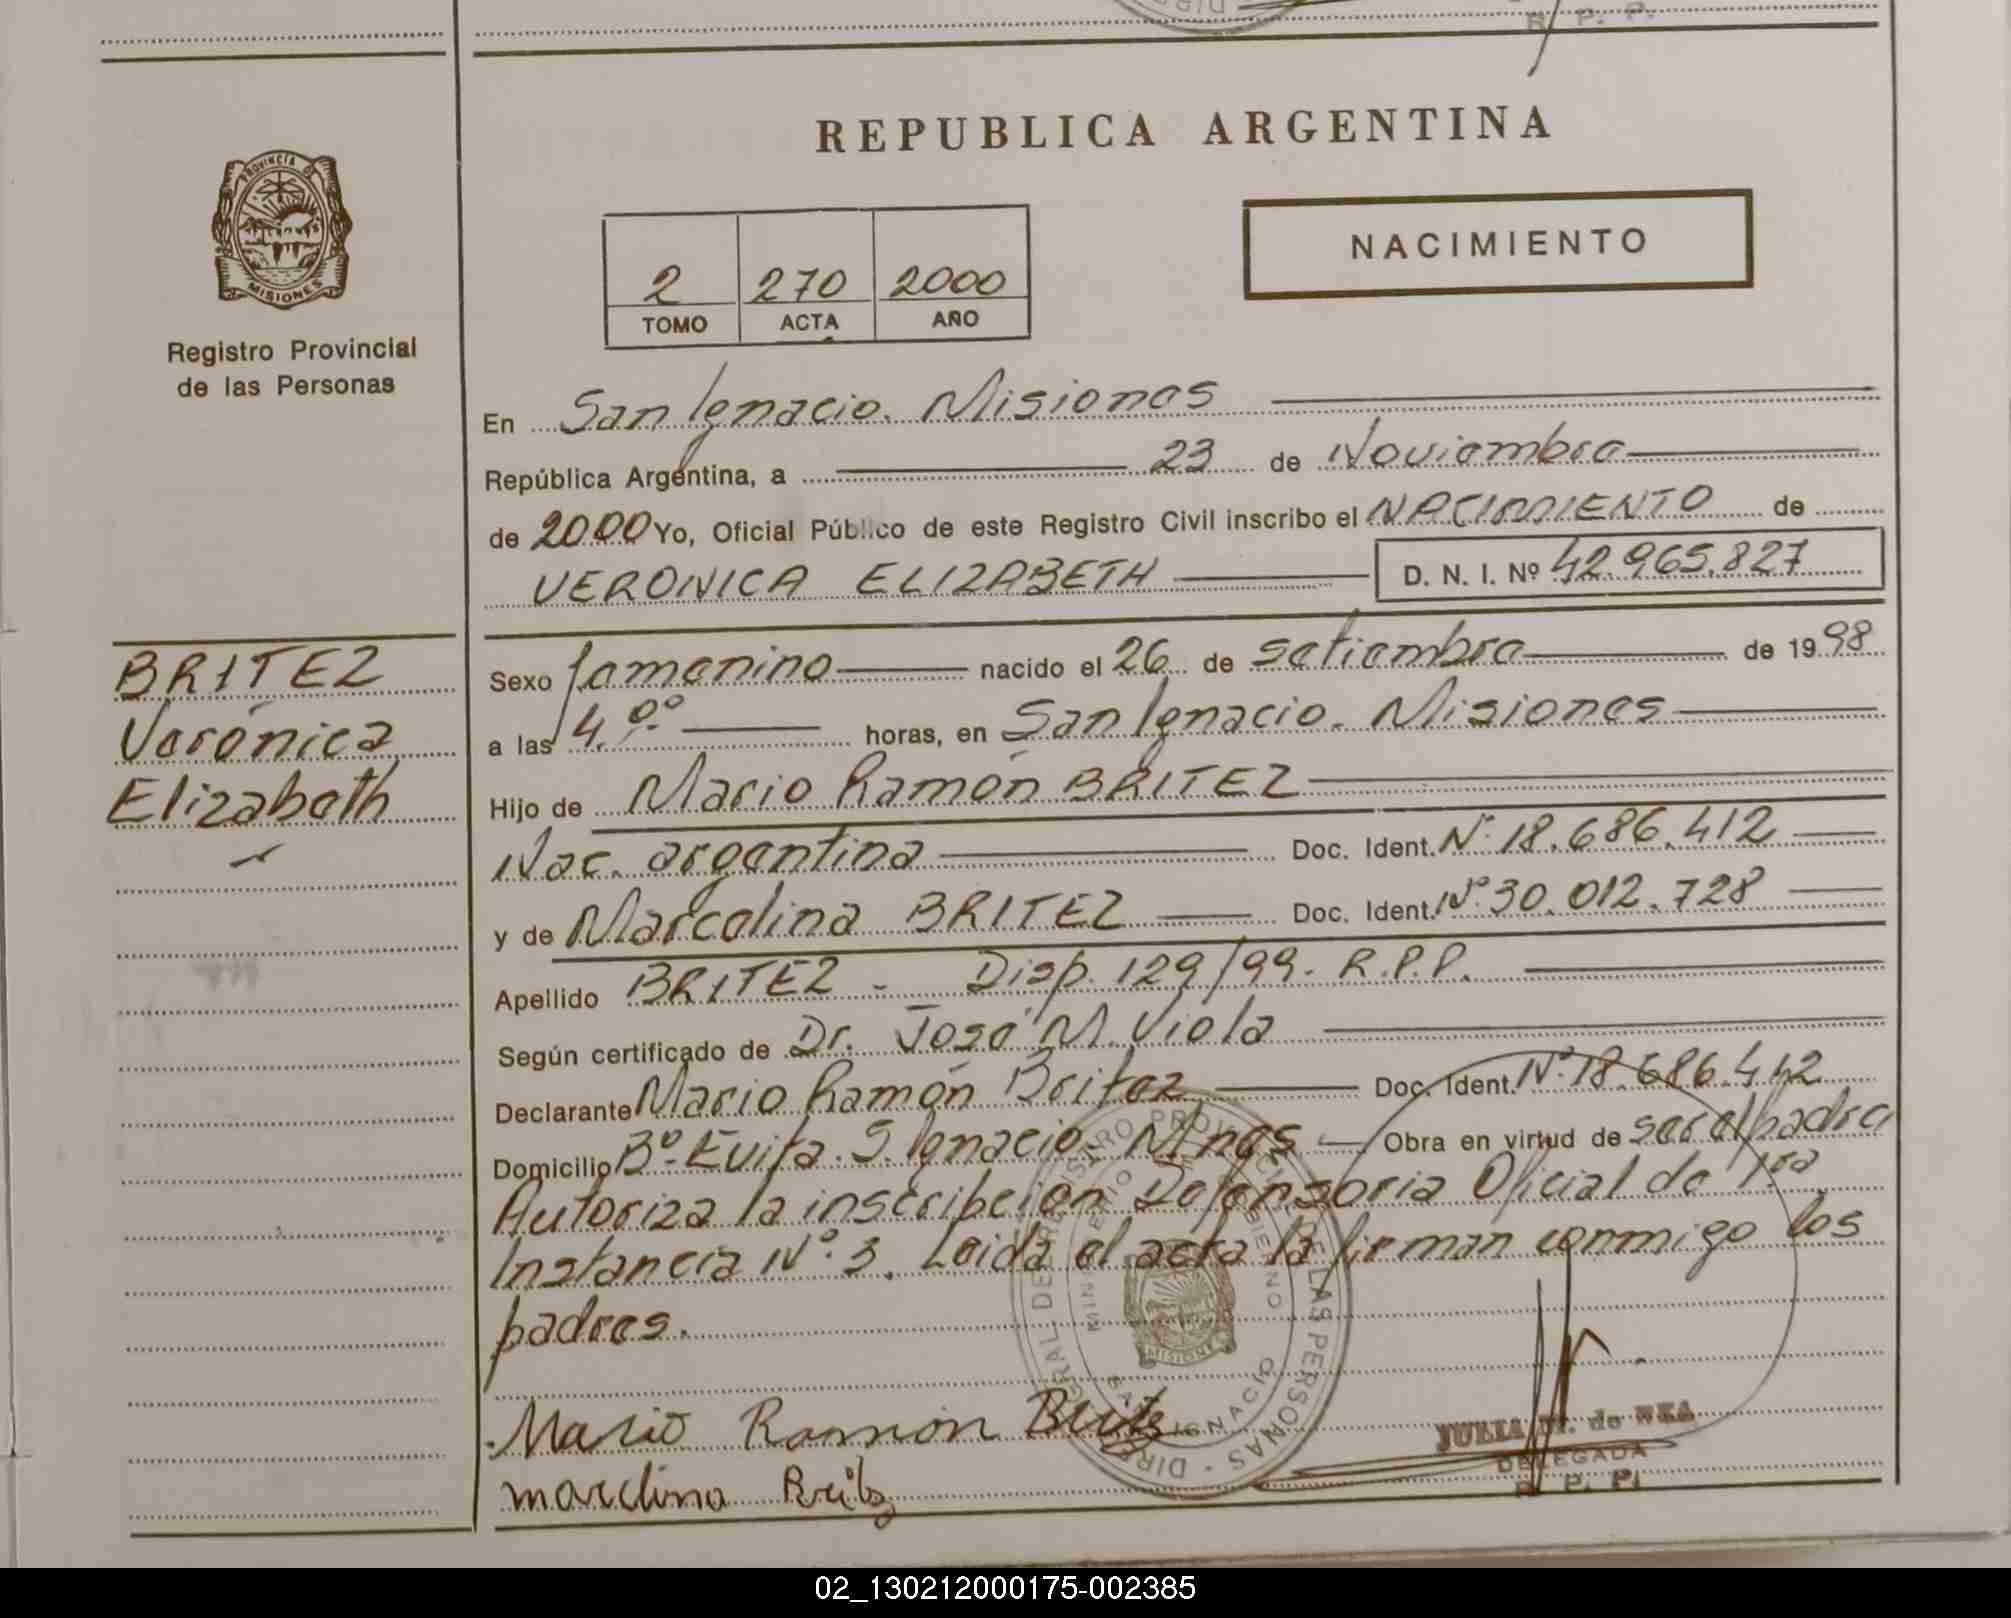 R. P. P.
REPUBLICA ARGENTINA
PROVINCIA DE
MISIONES
Registro Provincial
de las Personas
NACIMIENTO
2 270 2000
TOMO ACTA AÑO
En San Ignacio. Misiones
República Argentina, a 23 de Noviembre
de 2000 Yo, Oficial Público de este Registro Civil inscribo el NACIMIENTO de
VERONICA ELIZABETH D. N. I. Nº 42.965.827
BRITEZ
Verónica
Elizabeth
Sexo femenino nacido el 26 de setiembre de 1998
a las 4.00 horas, en San Ignacio. Misiones
Hijo de Mario Ramón BRITEZ
Nac. argentina Doc. Ident. Nº 18.686.412
y de Marcelina BRITEZ Doc. Ident. Nº 30.012.728
Apellido BRITEZ - Disp. 129/99. R.P.P.
Según certificado de Dr. José M. Viola
Declarante Mario Ramón Britez Doc. Ident. Nº 18.686.412
Domicilio Bº. Evita. S. Ignacio. Mnes Obra en virtud de ser el padre
Autoriza la inscribción Defensoria Oficial de 1ra
Instancia Nº. 3. Leida el acta la firman conmigo los
padres.
Mario Ramón Britz
marclina Britz
DIRECCION GENERAL DE REGISTRO PROVINCIAL DE LAS PERSONAS
MINISTERIO DE GOBIERNO
SAN IGNACIO
MISIONES
JULIA de REA
DELEGADA
R. P. P.
02_130212000175-002385